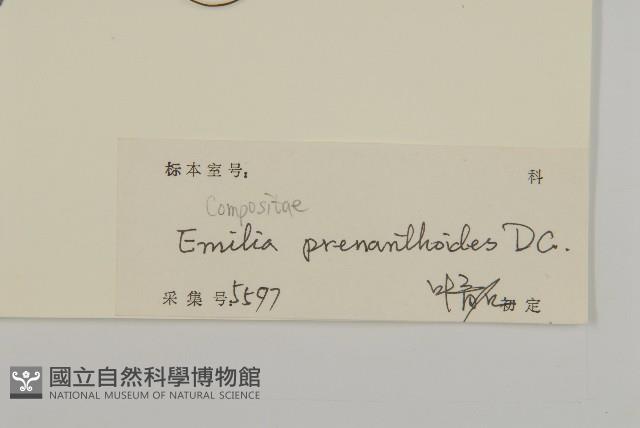 标本室号: 科
Compositae
Emilia prenanthoides DC.
采集号: 5597 初定
國立自然科學博物館
NATIONAL MUSEUM OF NATURAL SCIENCE